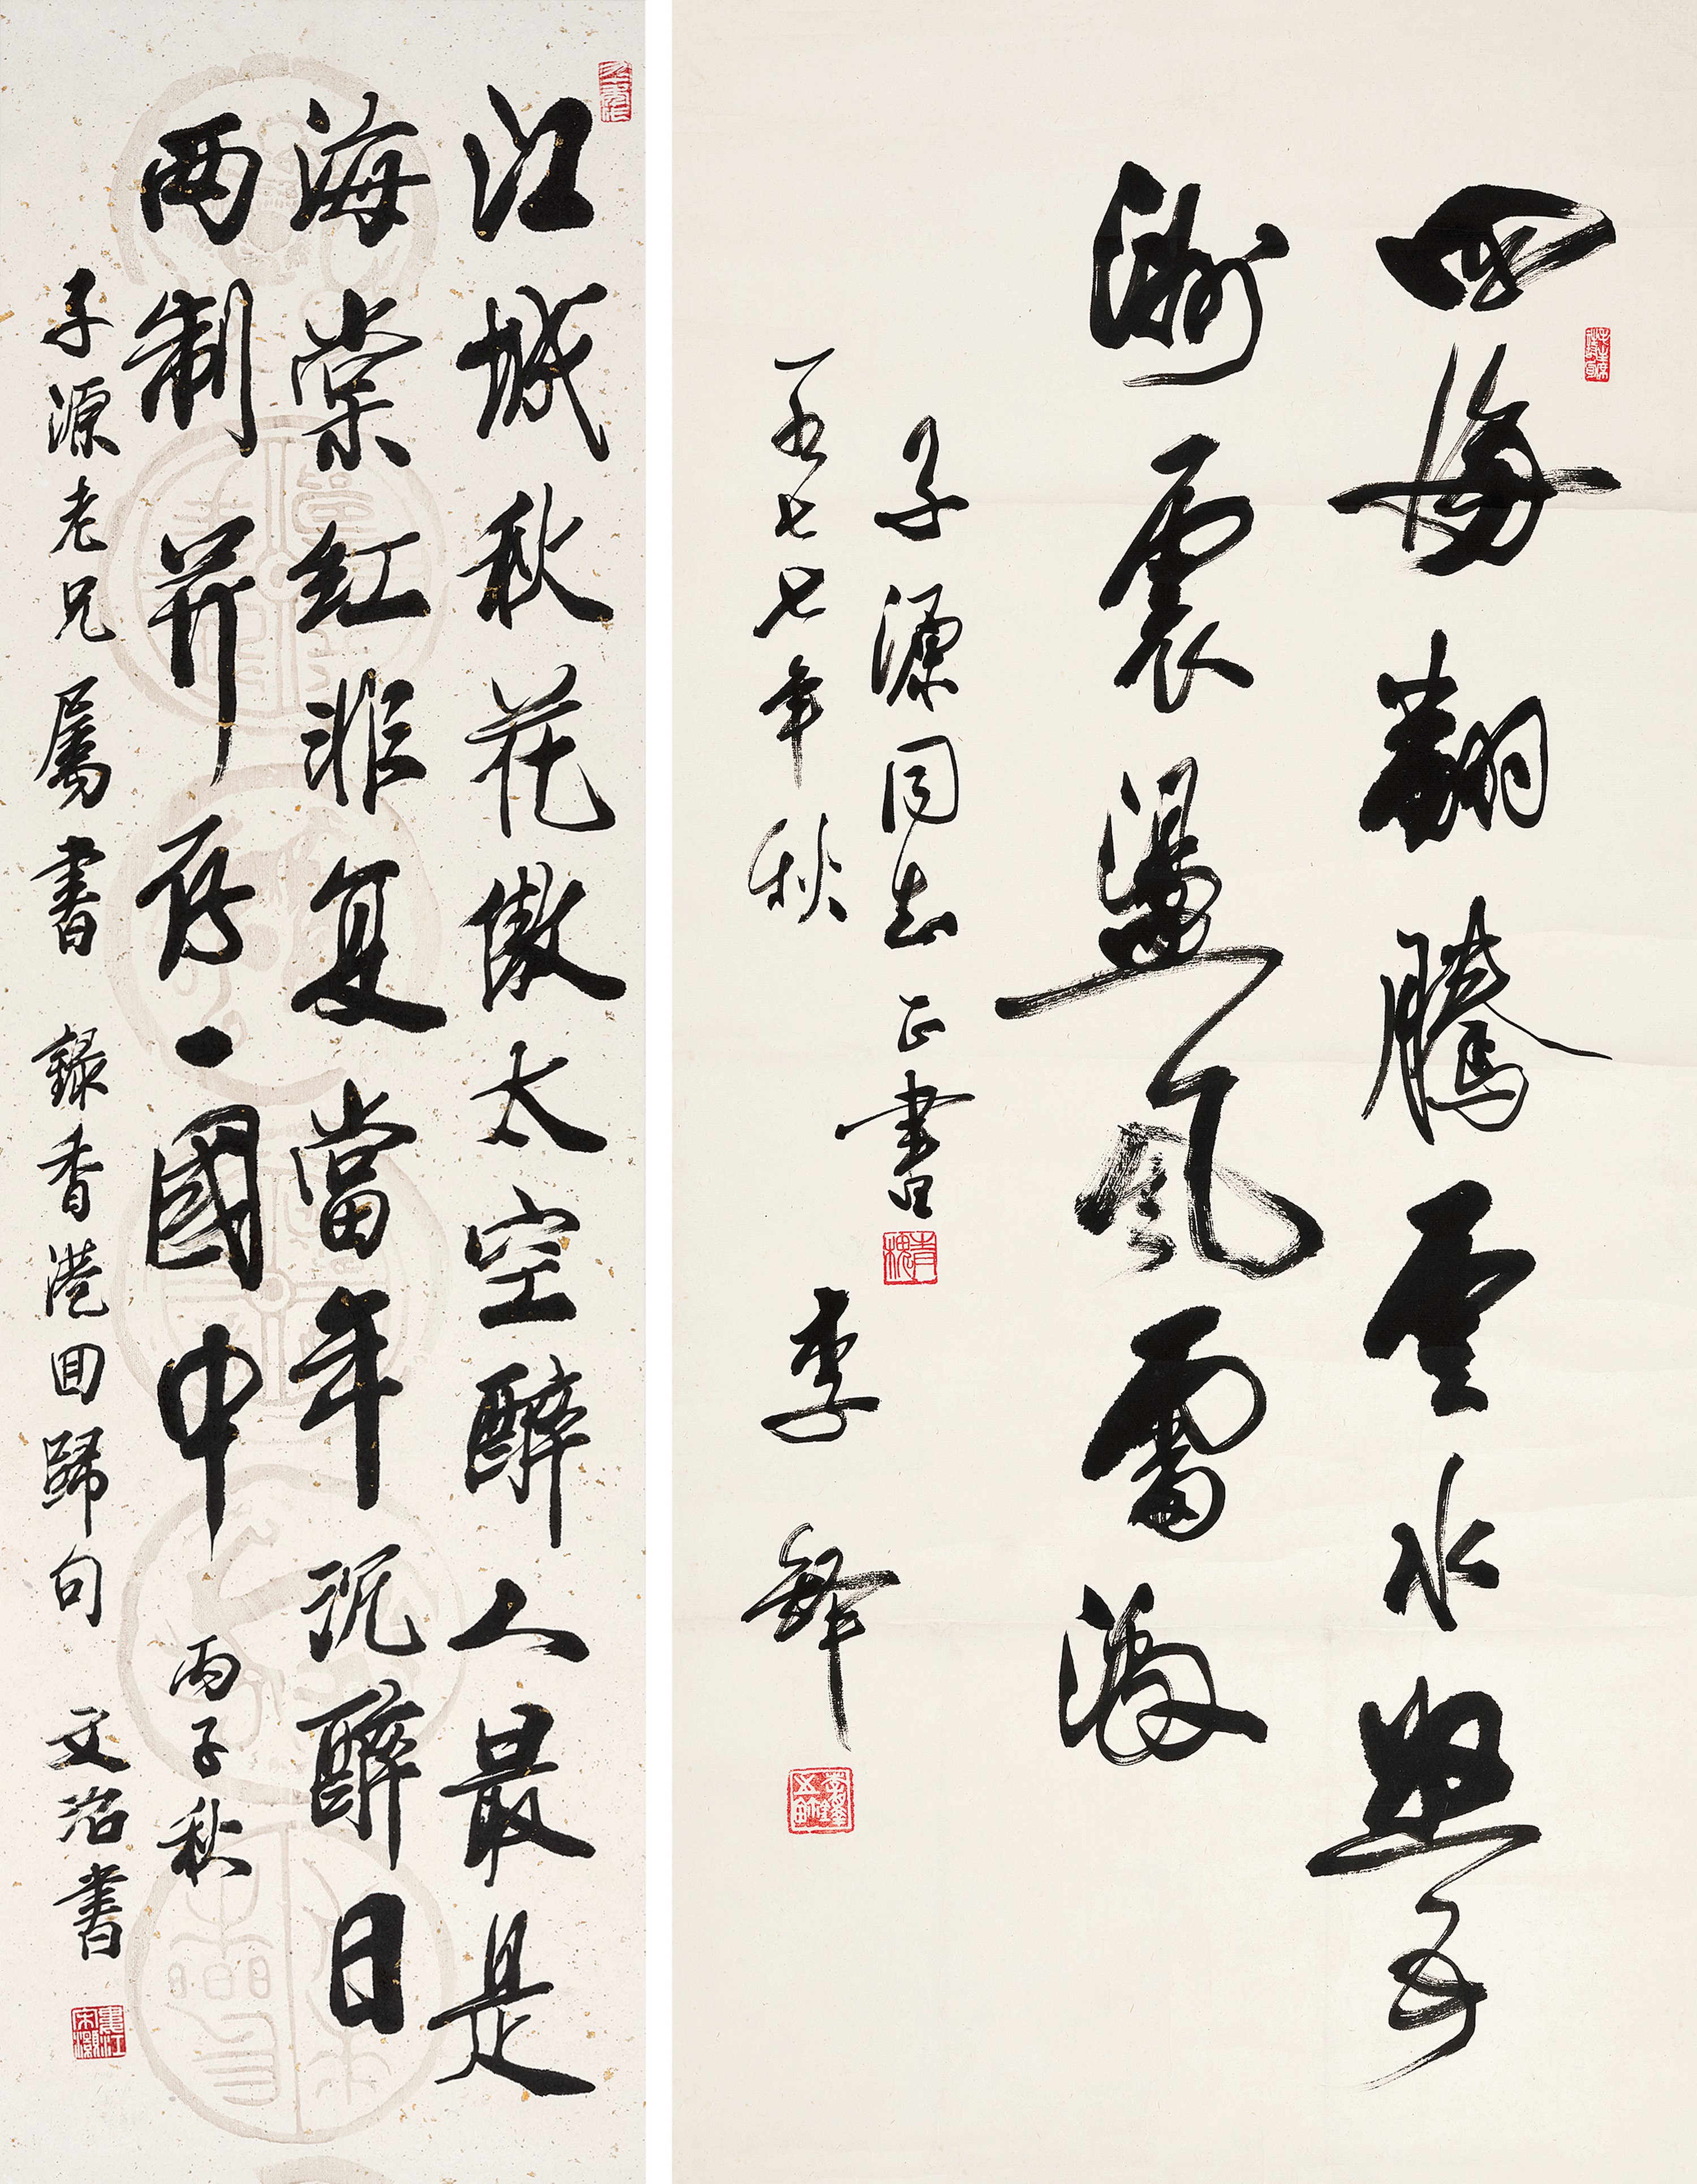 四海翻騰雲水怒五
洲震盪風雷激
子源同志正書
一九七七年秋 李鐸
江城秋花傲太空醉人最是
海棠红非复當年沉醉日
两制并存一國中 丙子秋
子源老兄屬書 錄香港回歸句 文治書